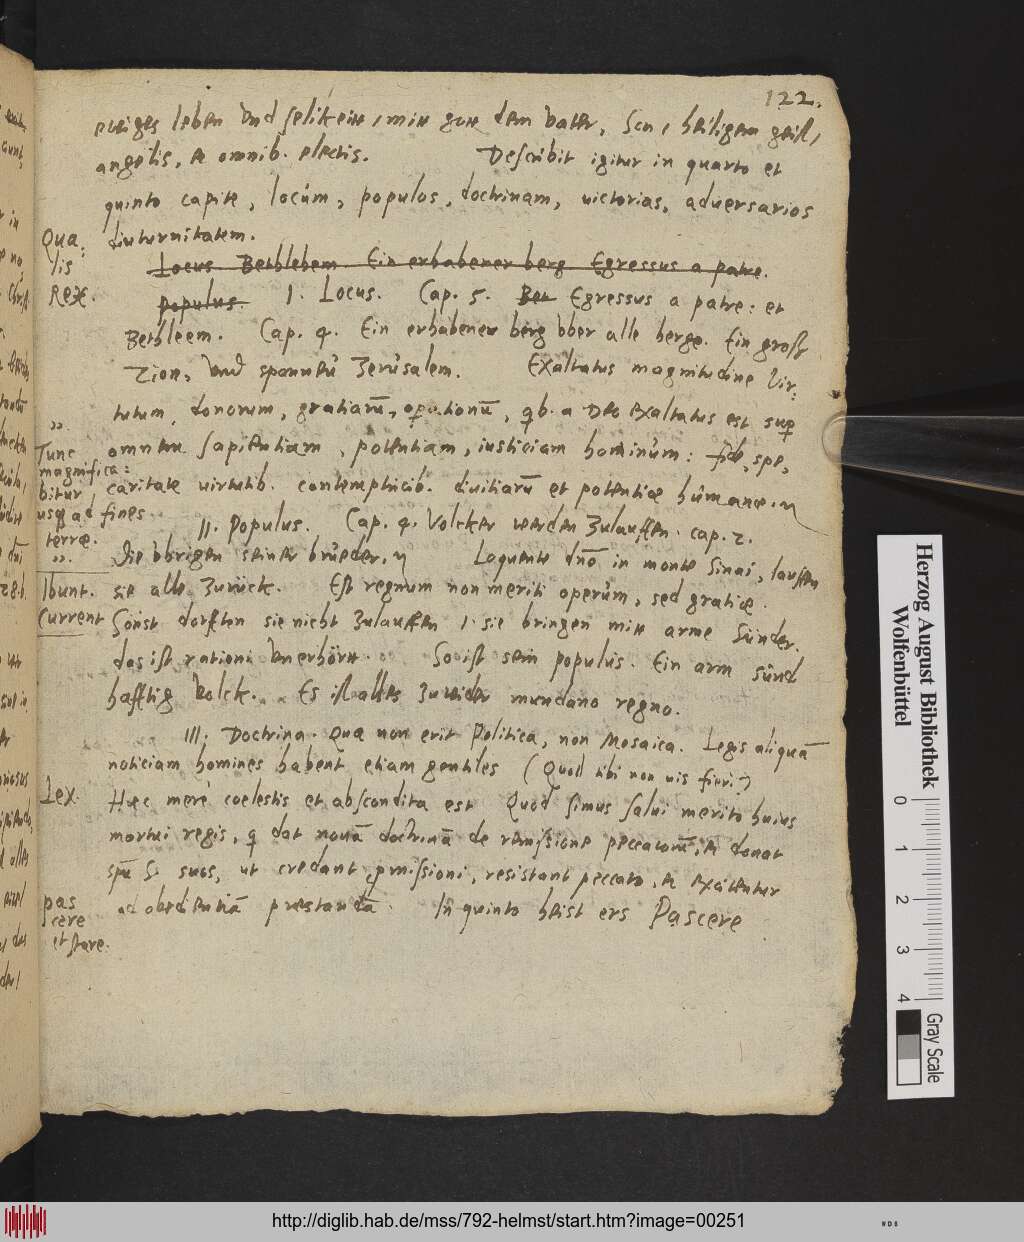 122.
ewiges leben vnd selikeitt, mitt gott dem vater, Son, heiligem geist,
angelis, et omnib. electis. Describit igitur in quarto et
quinto capite, locum, populos, doctrinam, victorias, adversarios
diuturnitatem.
Qua:
lis
Rex.
Locus Bethlehem. Ein erhabener berg Egressus a patre.
populus. I. Locus. Cap. 5. Bet Egressus a patre: et
Bethleem. Cap. 4. Ein erhabener berg vber alle berge. Ein gross
Zion, vnd Jerusalem. Exaltatus magnitudine vir:
tutum, donorum, gratiarū, operationū, a Deo exaltatus est sup
omnem sapientiam, potentiam, iusticiam hominum: fide, spe,
caritate virtutib. contemptricib. divitiarū et potentiae humanae.
,,
Tunc
magnifica:
bitur
usq ad fines
terrae.
,,
II. Populus. Cap. 4. Volcker werden zulauffen. cap. 2.
Die vbrigen seiner brueder. Loquente dno in monte Sinai, lauffen
Ibunt. sie alle zuruck. Est regnum non meriti operum, sed gratiae.
Current Sonst dorfften sie nicht zulauffen. sie bringen mitt arme Sunder.
das ist rationi vnerhört. So ist sein populus. Ein arm sund
hafftig volck. Es ist alles zuwider mundano regno.
III. Doctrina. Quae non erit Politica, non Mosaica. Legis aliquā
noticiam homines habent etiam gentiles (Quod tibi non vis fieri?)
Lex. Haec merè coelestis et abscondita est Quod simus salvi merito huius
mortui regis, q dat novā doctrinā de remissione peccatorū, et donat
spū S. suos, ut credant promissioni, resistant peccato, et excitentur
ad obedientiā praestandā. In quinto heist ers Pascere
pas
cere
et stare.
Herzog August Bibliothek
Wolfenbüttel
0 1 2 3 4 Gray Scale
http://diglib.hab.de/mss/792-helmst/start.htm?image=00251